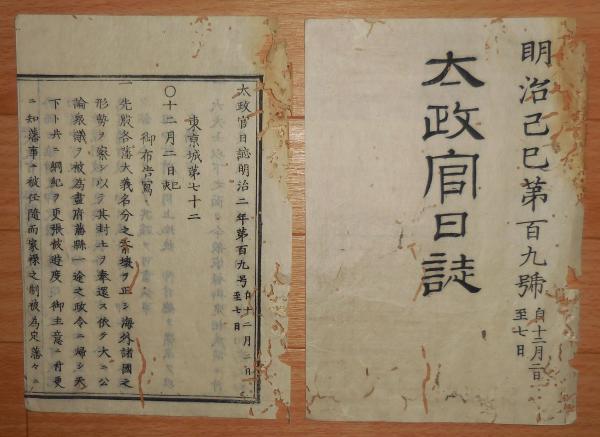 明治己巳第百九號 自十二月二日至七日
太政官日誌
太政官日誌明治二年第百九号 自十二月二日至七日
東京城第七十二
〇十二月二日記
御布告寫
一先般各藩大義名分之紊壊ヲ正シ海外諸國之
形勢ヲ察シ以テ其封土ヲ奉還ス依テ大ニ公
論衆議ヲ被為盡府藩縣一途之政令ニ帰シ天
下ト共ニ綱紀ヲ更張被遊度 御主意ニ付更
ニ知藩事ニ被任随而家禄之制被為定藩々ニ